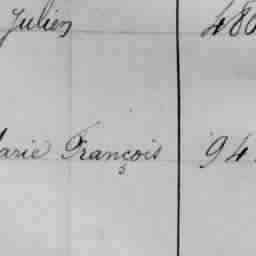 Julien 480
Marie François 94